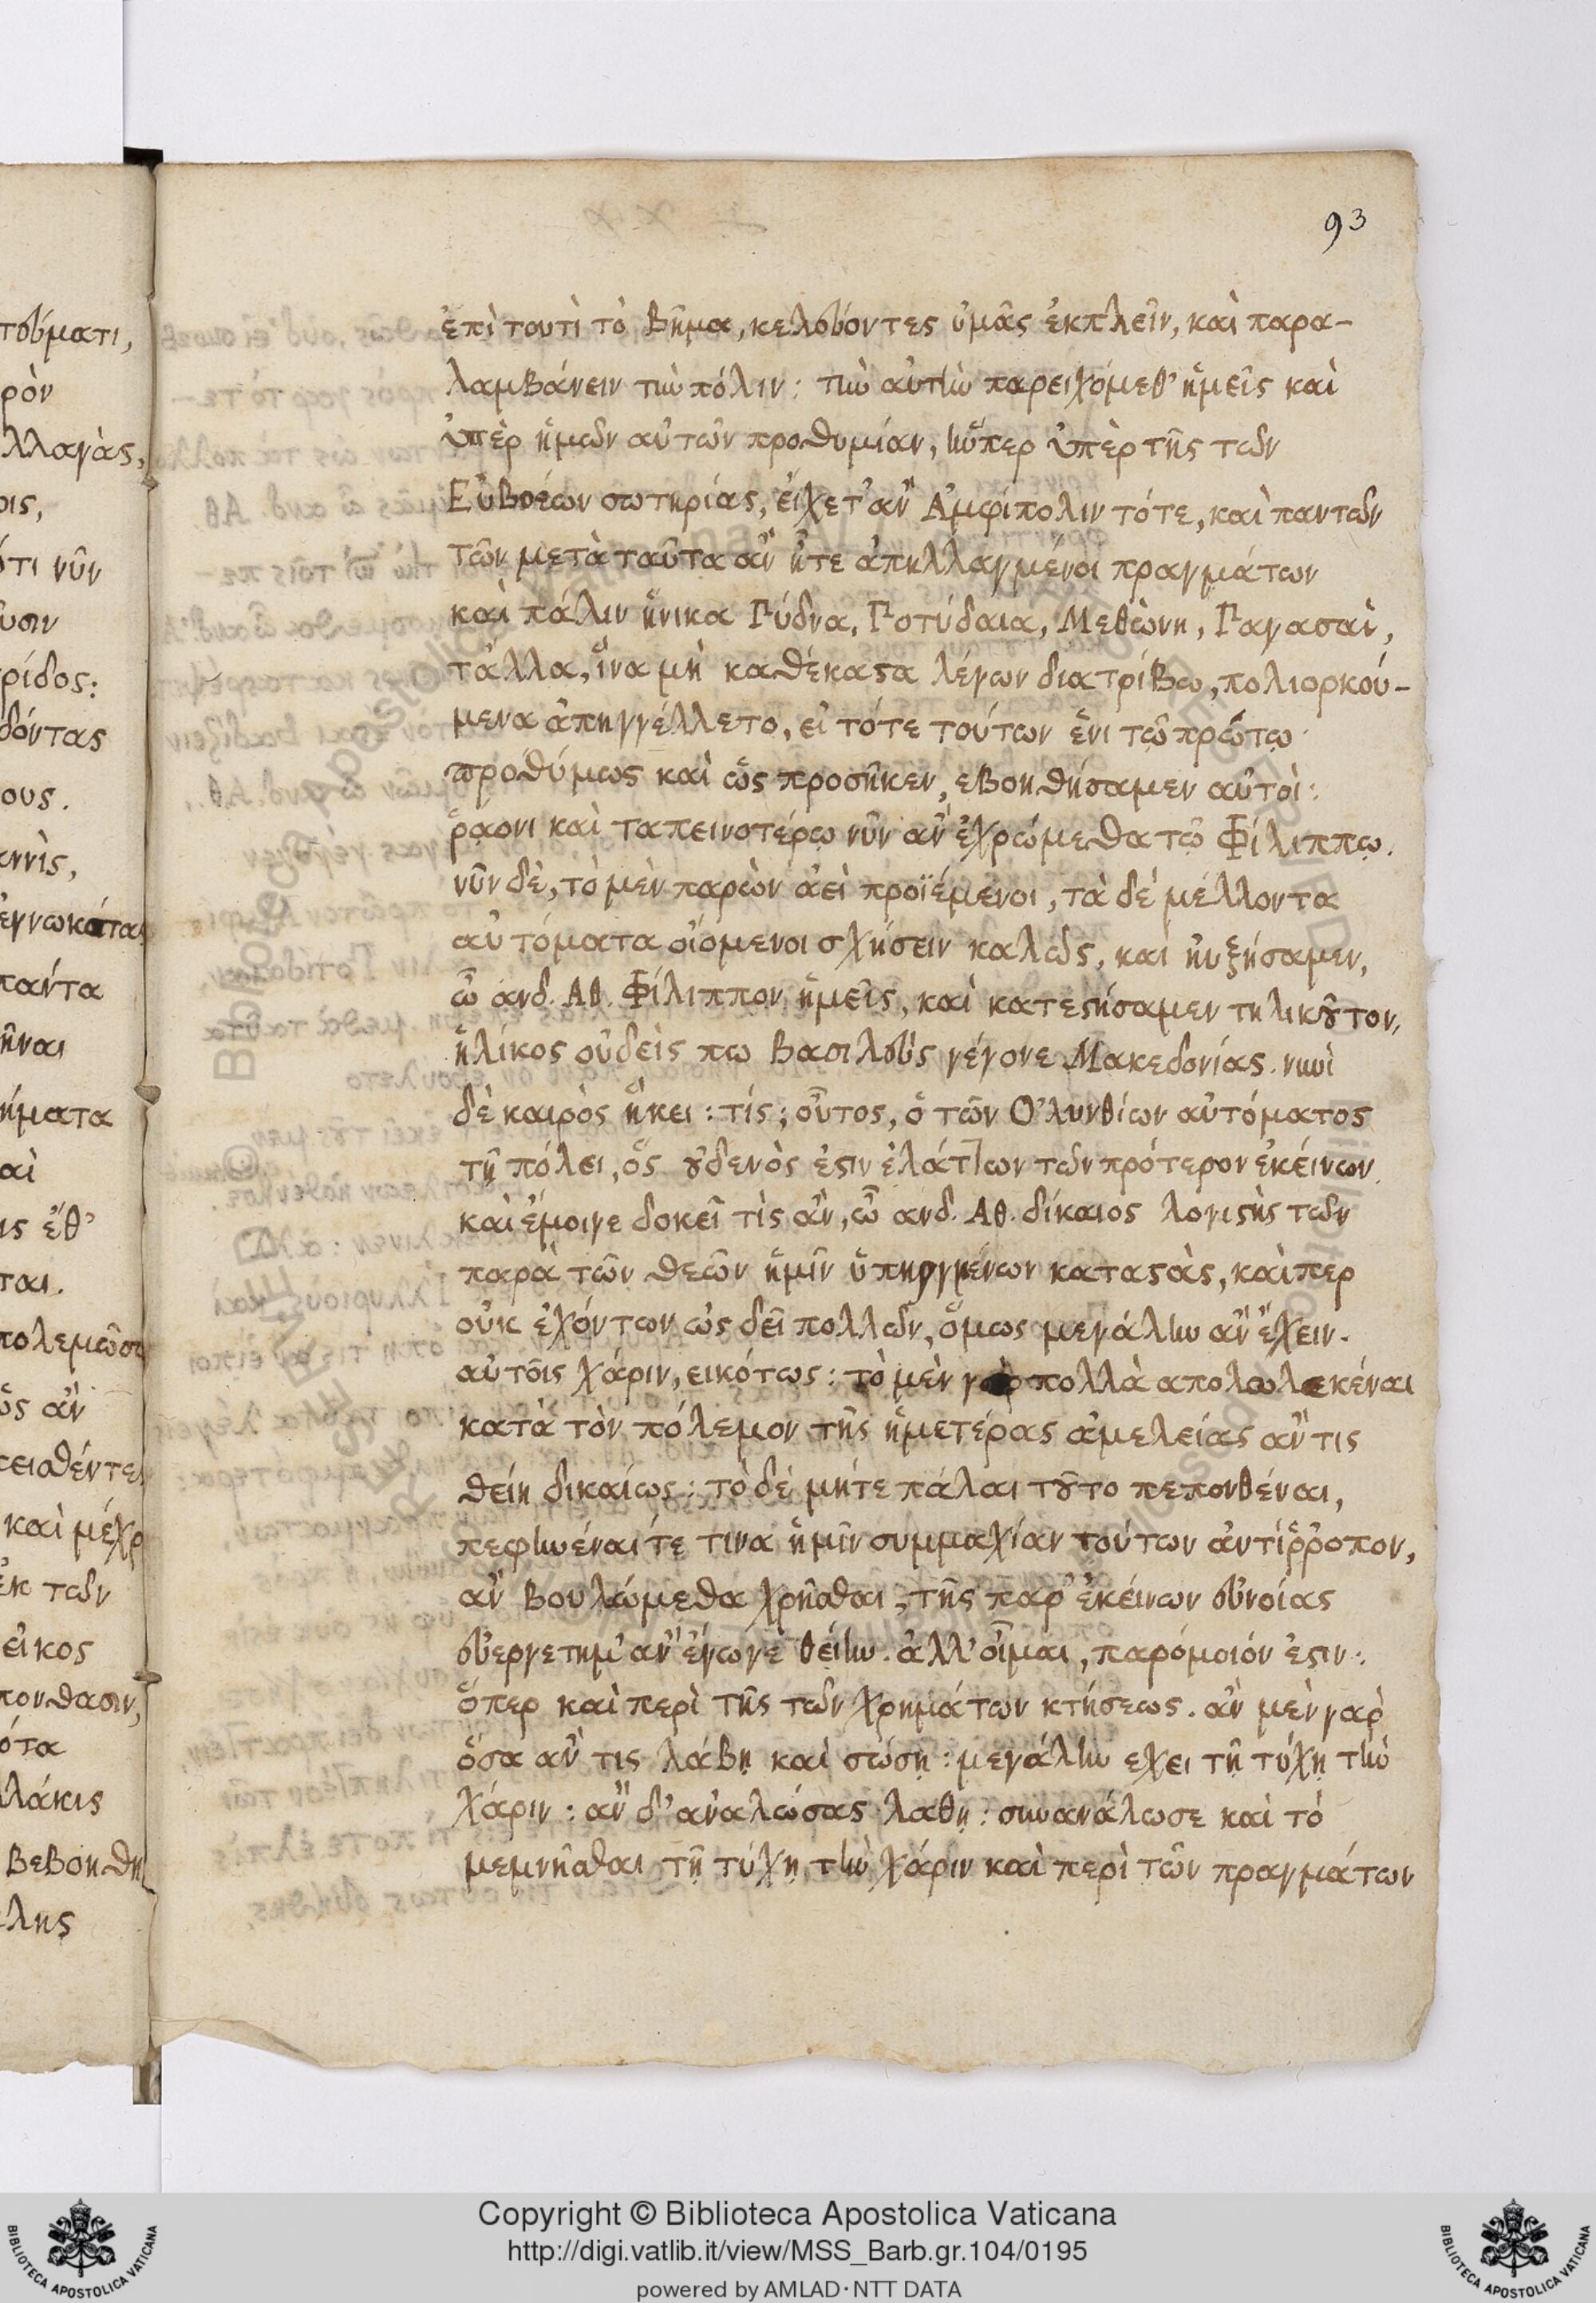 93
ἐπὶ τουτὶ τὸ βῆμα, κελεύοντες ὑμᾶς ἐκπλεῖν, καὶ παρα-
λαμβάνειν τὴν πόλιν: τὴν αὐτὴν παρειχόμεθ' ἡμεῖς καὶ
ὑπὲρ ἡμῶν αὐτῶν προθυμίαν, ἥνπερ ὑπὲρ τῆς τῶν
Εὐβοέων σωτηρίας, εἴχετ' ἂν Ἀμφίπολιν τότε, καὶ παντων
τῶν μετὰ ταῦτα ἂν ἦτε ἀπηλλαγμένοι πραγμάτων
καὶ πάλιν ἡνίκα Πύδνα, Ποτίδαια, Μεθώνη, Παγασαὶ,
τἄλλα, ἵνα μὴ καθέκαστα λέγων διατρίβω, πολιορκού-
μενα ἀπηγγέλλετο, εἰ τότε τούτων ἑνὶ τῷ πρώτῳ
προθύμως καὶ ὡς προσῆκεν, εβοηθήσαμεν αὐτοὶ:
ῥᾴονι καὶ ταπεινοτέρῳ νῦν ἂν ἐχρώμεθα τῷ Φίλιππῳ.
νῦν δὲ, τὸ μὲν παρὼν ἀεὶ προϊέμενοι, τὰ δὲ μέλλοντα
αὐτόματα οἰόμενοι σχήσειν καλῶς, καὶ ηὐξήσαμεν,
ὦ ἀνδ. Αθ. Φίλιππον ἡμεῖς, καὶ κατεστήσαμεν τηλικοῦτον,
ἡλίκος οὐδείς πω βασιλεὺς γέγονε Μακεδονίας. νυνὶ
δὲ καιρὸς ἥκει: τίς; οὗτος, ὁ τῶν Ὀλυνθίων αὐτόματος
τῇ πόλει, ὃς οὐδενὸς ἐστιν ἐλάττων τῶν πρότερον ἐκείνων.
καὶ ἔμοιγε δοκεῖ τὶς ἂν, ὦ ανδ. Αθ. δίκαιος λογιστὴς τῶν
παρὰ τῶν θεῶν ἡμῖν ὑπηργμένων καταστὰς, καὶπερ
οὐκ ἐχόντων ὡς δεῖ πολλῶν, ὅμως μεγάλην ἂν ἔχειν.
αὐτοῖς χάριν, εικότως: τὸ μὲν γὰρ πολλὰ απολωλεκέναι
κατὰ τὸν πόλεμον τῆς ἡμετέρας ἀμελείας ἄν τις
θείη δικαίως: τὸ δὲ μήτε πάλαι τοῦτο πεπονθέναι,
πεφηνέναι τέ τινα ἡμῖν συμμαχίαν τούτων ἀντίῤῥοπον,
ἂν βουλώμεθα χρῆσθαι, τῆς παρ' ἐκείνων εὐνοίας
εὐεργετημ' ἂν ἔγωγε θείην. ἀλλ' οἶμαι, παρόμοιόν ἐστιν:
ὅπερ καὶ περὶ τῆς τῶν χρημάτων κτήσεως. ἂν μὲν γαρ
ὅσα ἄν τις λάβῃ καὶ σώσῃ: μεγάλην εχει τῇ τύχῃ τὴν
χάριν: ἂν δ' ἀναλώσας λαθῃ: συνανάλωσε καὶ τὸ
μεμνῆσθαι τῇ τύχῃ τὴν χάριν καὶ περὶ τῶν πραγμάτων
Copyright © Biblioteca Apostolica Vaticana
http://digi.vatlib.it/view/MSS_Barb.gr.104/0195
powered by AMLAD·NTT DATA